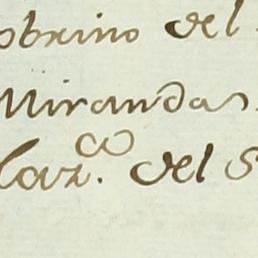 obrino del
Miranda
laz.co del S